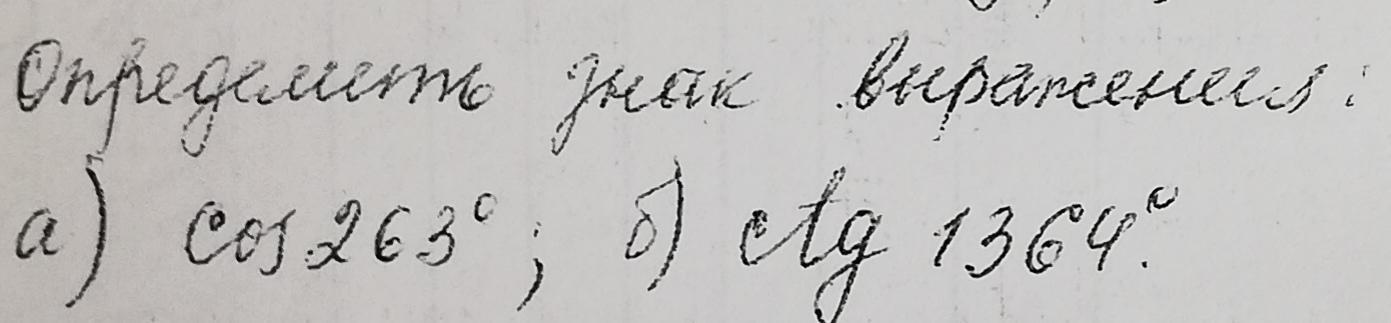 Определить знак выражения:
а) cos 263°; б) ctg 1364°.